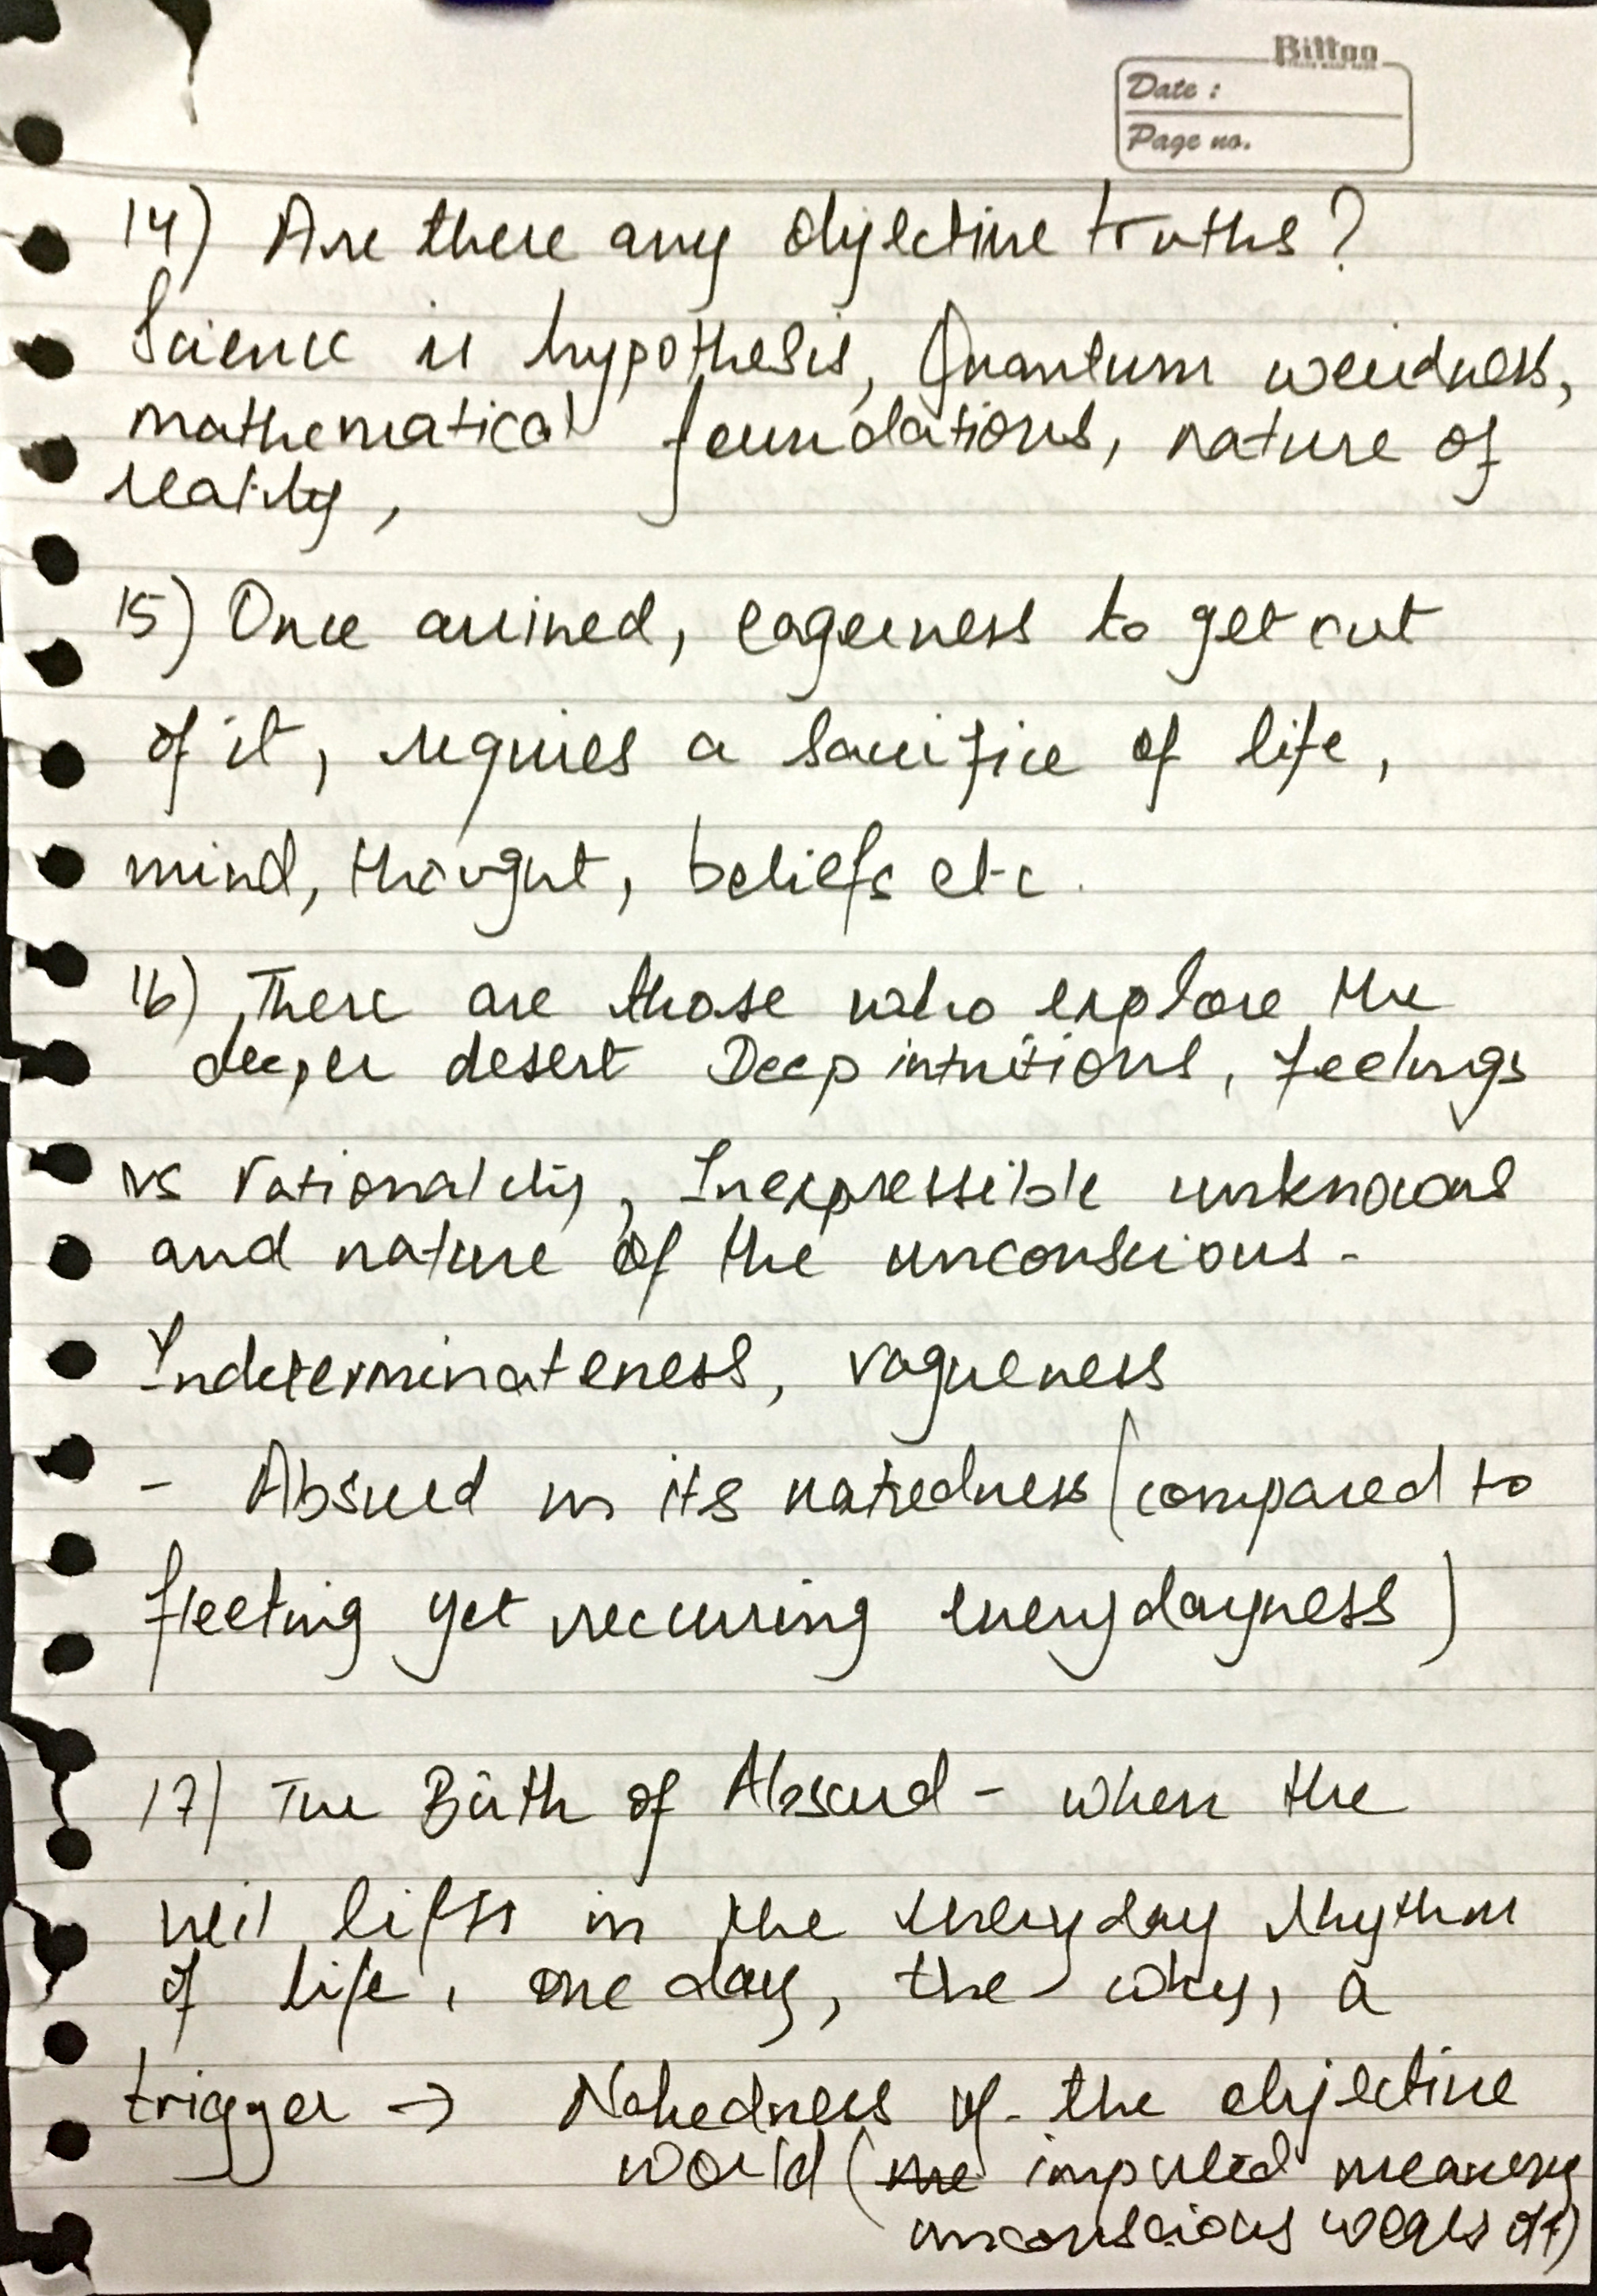 Bittoo
Date :
Page no.
14) Are there any objective truths?
Science is hypothesis, Quantum weirdness,
mathematical foundations, nature of
reality,
15) Once arrived, eagerness to get out
of it, requires a sacrifice of life,
mind, thought, beliefs etc.
16) There are those who explore the
deeper desert Deep intuitions, feelings
vs rationality, Inexpressible unknowns
and nature of the unconscious -
Indeterminateness, vagueness
- Absurd in its nakedness (compared to
fleeting yet reccuring everydayness)
17) The Birth of Absurd - when the
veil lifts in the everyday rhythm
of life, one day, the why, a
trigger → Nakedness of the objective
world ( imputed meaning
unconscious wears off)